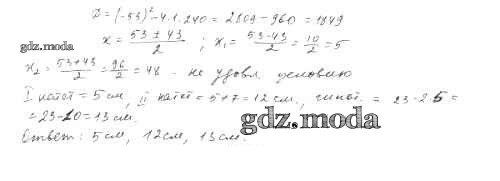 D = (-53)² - 4·1·240 = 2809 - 960 = 1849
x = (53 ± 43)/2 ; x₁ = (53-43)/2 = 10/2 = 5
gdz.moda
x₂ = (53+43)/2 = 96/2 = 48 - не удовл. условию
I катет = 5 см, II катет = 5+7 = 12 см., гипот. = 23-2·5 =
= 23-10 = 13 см.
gdz.moda
Ответ: 5 см, 12 см, 13 см.